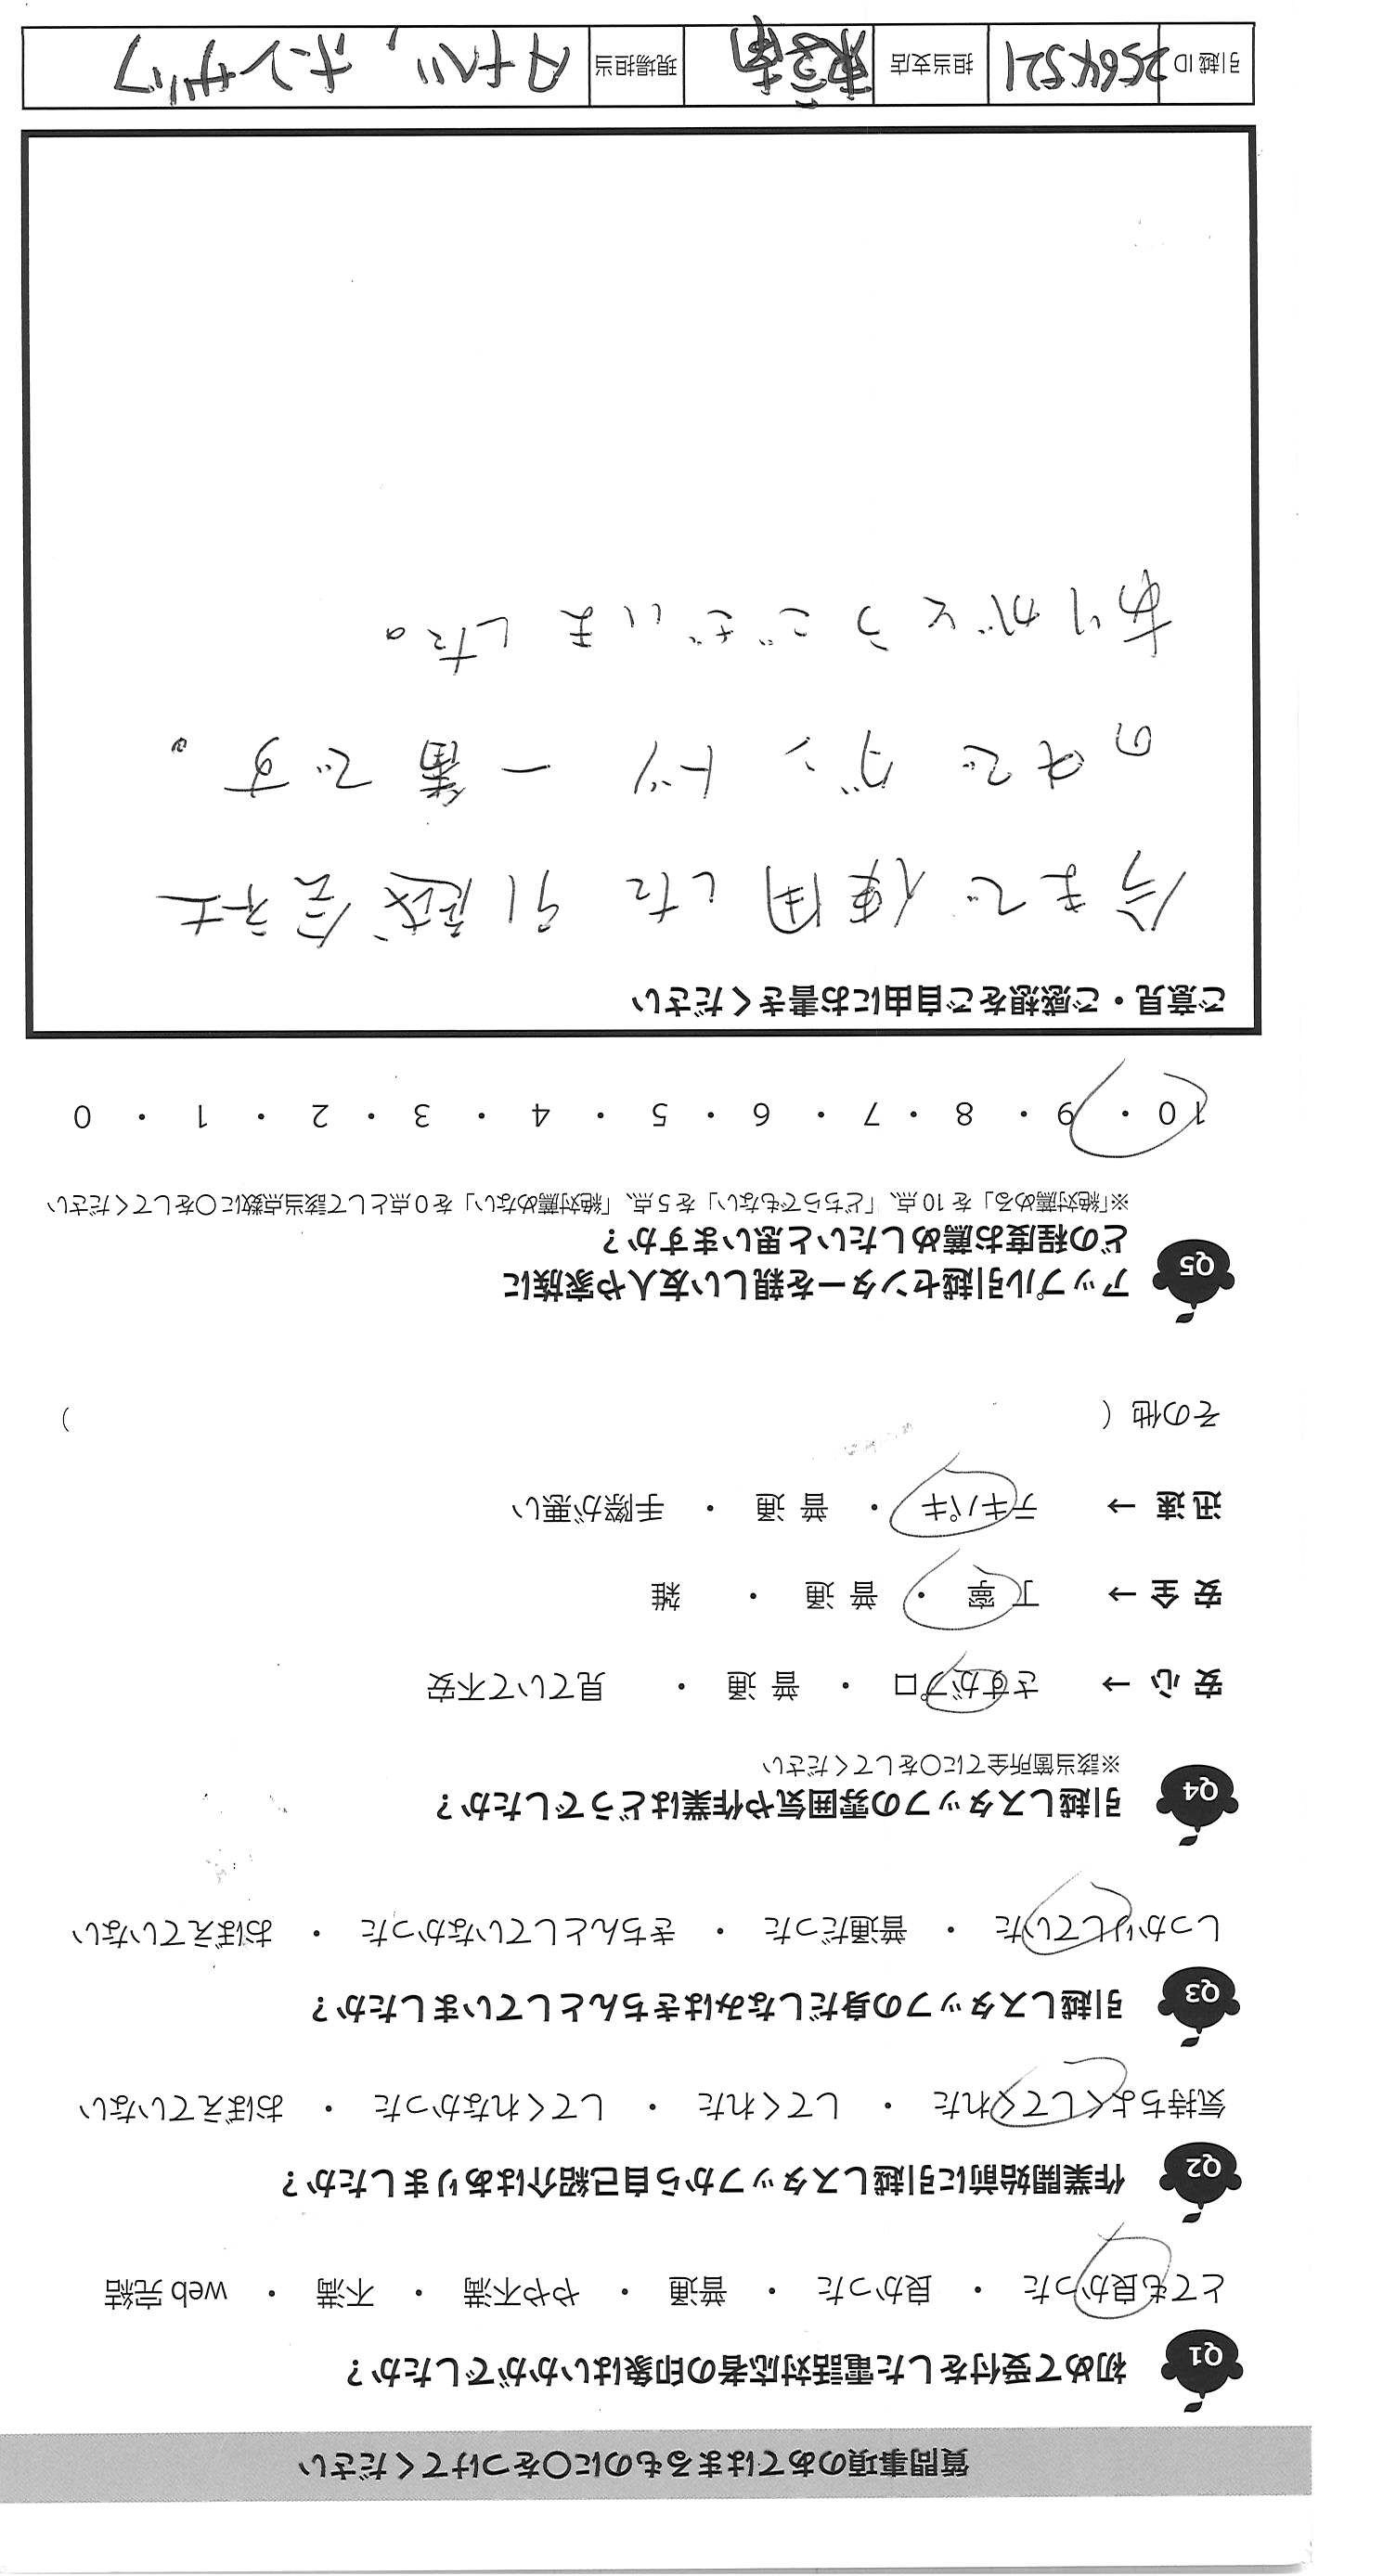 質問事項のあてはまるものに〇をつけてください
Q1 初めて受付をした電話対応者の印象はいかがでしたか？
とても良かった ・ 良かった ・ 普通 ・ やや不満 ・ 不満 ・ web 完結
Q2 作業開始前に引越しスタッフから自己紹介はありましたか？
気持ちよくしてくれた ・ してくれた ・ してくれなかった ・ おぼえていない
Q3 引越しスタッフの身だしなみはきちんとしていましたか？
しっかりしていた ・ 普通だった ・ きちんとしていなかった ・ おぼえていない
Q4 引越しスタッフの雰囲気や作業はどうでしたか？
※該当箇所全てに〇をしてください
安 心 → さすがプロ ・ 普 通 ・ 見ていて不安
安 全 → 丁 寧 ・ 普 通 ・ 雑
迅 速 → テキパキ ・ 普 通 ・ 手際が悪い
その他（ ）
Q5 アップル引越センターを親しい友人や家族に
どの程度お薦めしたいと思いますか？
※「絶対薦める」を 10 点、「どちらでもない」を 5 点、「絶対薦めない」を 0 点として該当点数に〇をしてください
10 ・ 9 ・ 8 ・ 7 ・ 6 ・ 5 ・ 4 ・ 3 ・ 2 ・ 1 ・ 0
ご意見・ご感想をご自由にお書きください
今まで使用した引越会社
の中でダントツ一番です。
ありがとうございました。
引越 ID 2564521 担当支店 東京南 現場担当